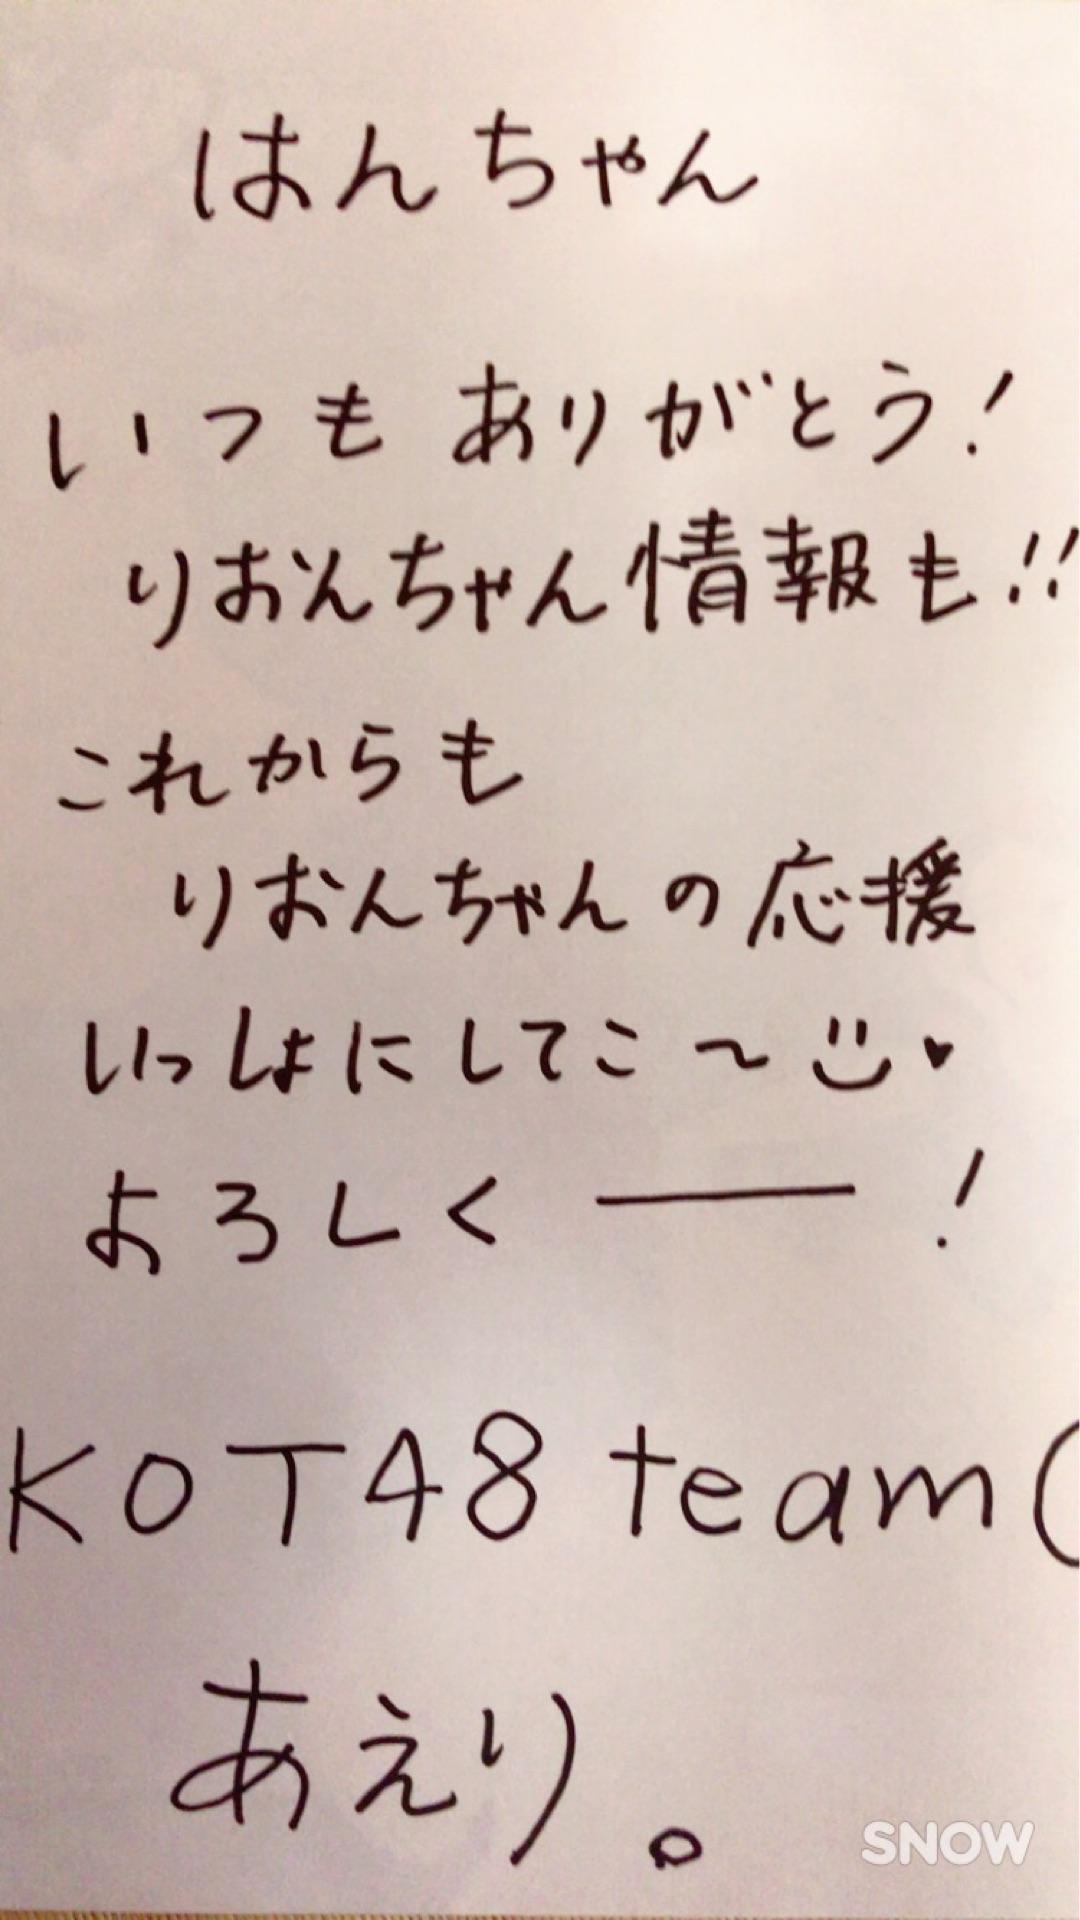 はんちゃん
いつもありがとう!
りおんちゃん情報も!!
これからも
りおんちゃんの応援
いっしょにしてこ〜
よろしくー!
KOT48 team
あえり。
SNOW